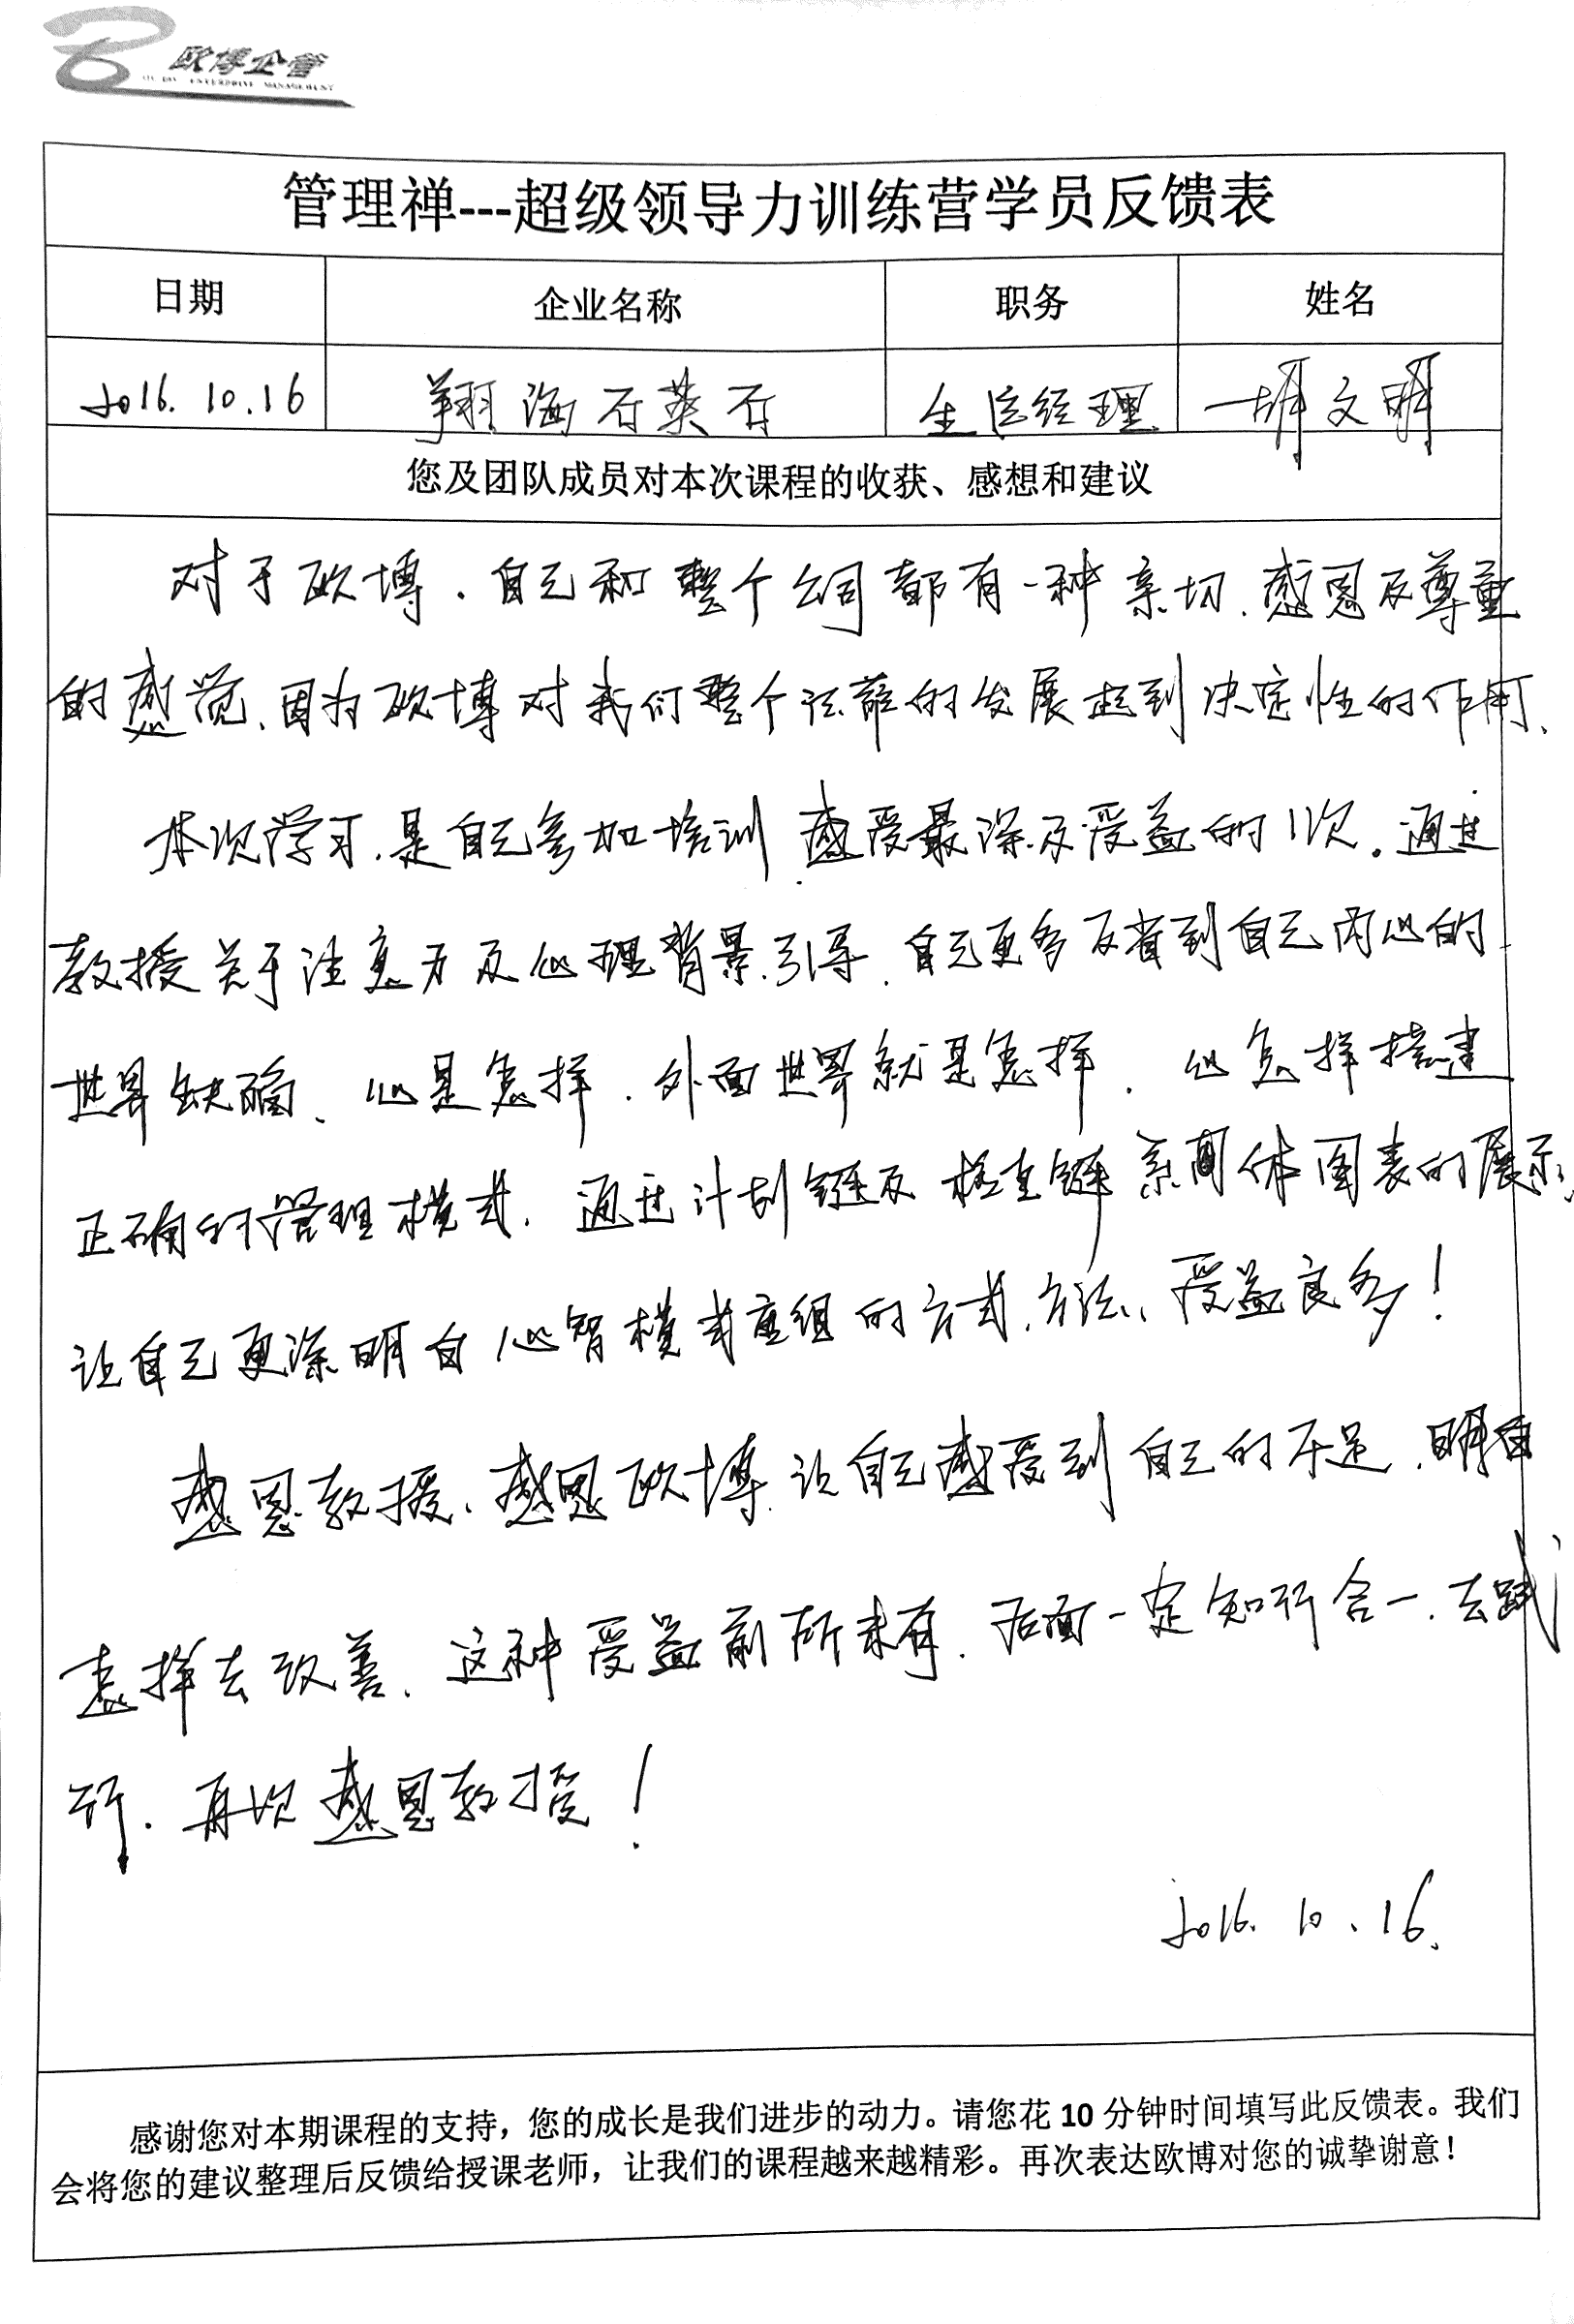 欧博企管
管理禅---超级领导力训练营学员反馈表
日期 企业名称 职务 姓名
2016.10.16 翔海石英石 生产经理 胡文明
您及团队成员对本次课程的收获、感想和建议
对于欧博、自己和整个公司都有一种亲切、感恩及尊重
的感觉、因为欧博对我们整个的发展起到决定性的作用、
本次学习、是自己参加培训感受最深及受益的1次。通过
教授关于注意力及心理背景引导、自己更多反省到自己内心的
世界缺陷、心是怎样、外面世界就是怎样、心怎样搭建
正确的管理模式、通过计划链及检查链系体图表的展示、
让自己更深明白心智模式重组的方式、方法、受益良多！
感恩教授、感恩欧博、让自己感受到自己的不足、明白
怎样去改善、这种受益前所未有、后面一定知行合一、去践
行、再次感恩教授！
2016.10.16.
感谢您对本期课程的支持，您的成长是我们进步的动力。请您花 10 分钟时间填写此反馈表。我们
会将您的建议整理后反馈给授课老师，让我们的课程越来越精彩。再次表达欧博对您的诚挚谢意！